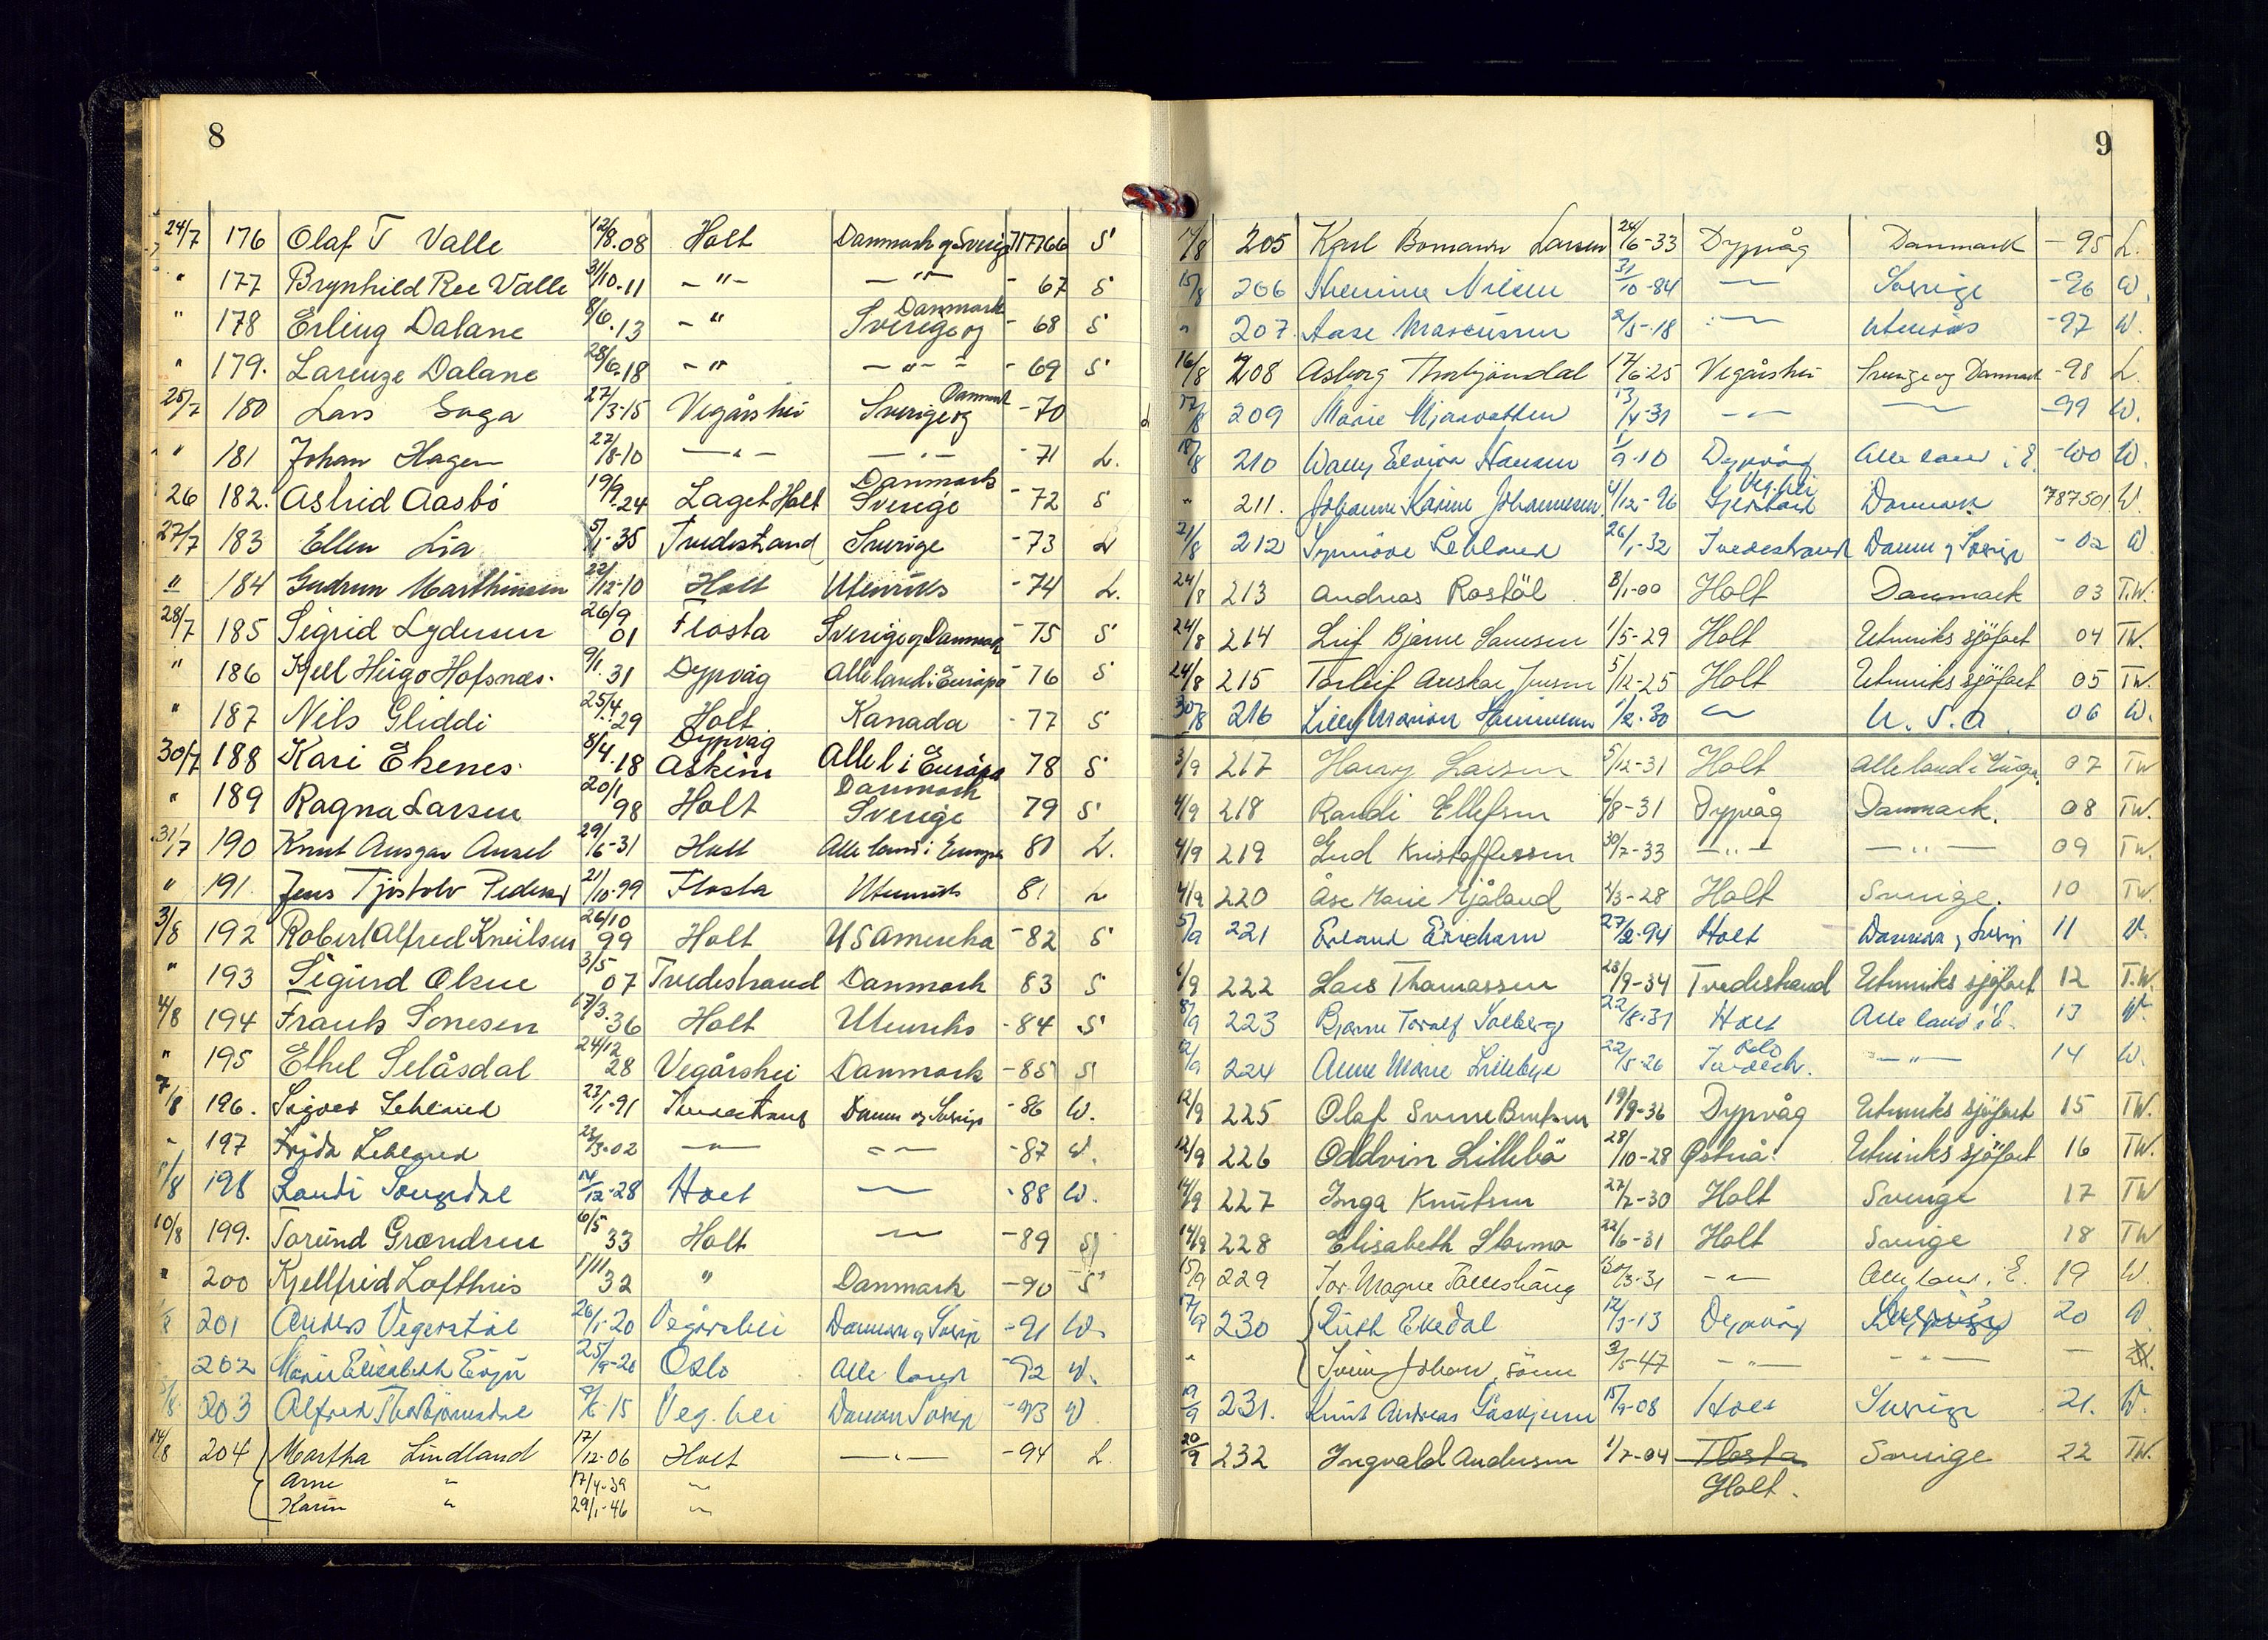 8
24/7 176 Olaf T Valle 12/8.08 Holt Danmark og Sverige 717766 S
" 177 Brynhild Ree Valle 31/10.11 - " - - " - - 67 S
" 178 Erling Dalane 8/6.13 - " Sverige og Danmark - 68 S
" 179. Larenze Dalane 28/6.18 - " - " - - 69 S
25/7 180 Lars Saga 27/3-15 Vegårshei Sverige og Danmark - 70
" 181 Johan Hagen 27/8-10 - " - - " - - 71 L.
26 182. Astrid Aasbö 19/9-24 Laget Holt Danmark Sverige - 72 S
27/7 183 Ellen Lia 5/1-35 Tvedestrand Sverige - 73 L
" 184 Gudrun Marthinsen 22/12-10 Holt Utenriks - 74 L.
28/7 185 Sigrid Lydersen 26/9 01 Flosta Sverige og Danmark - 75 S
" 186 Kjell Hugo Hofsnæs. 9/1.31 Dypvåg Alle land i Europa - 76 S
" 187 Nils Gliddi 25/4.29 Holt Kanada - 77 S
30/7 188 Kari Ekenes. 8/4.18 Dypvåg Askim Alle l i Europa 78 S
" 189 Ragna Larsen 20/1 98 Holt Danmark Sverige 79 S
31/7 190 Knut Ansgar Ansel 29/6-31 Holt Alle land i Europa 80 L.
" 191 Jens Tjostolv Pedersen 21/10-99 Flosta Utenriks 81 L
3/8 192 Robert Alfred Knutsen 26/10 99 Holt US Amerika - 82 S
" 193 Sigurd Olsen 3/5 07 Tvedestrand Danmark 83 S
4/8 194 Frank Sonesen 17/3.36 Holt Utenriks - 84 S
" 195 Ethel Selåsdal 24/12 28 Vegårshei Danmark - 85 S
7/8 196. Lebland 23/1-91 Tvedestrand Danm og Sverige - 86 W.
" 197 Frida Lebland 22/3-02 - " - - " - - 87 W.
8/8 198 Randi Songedal 14/12-28 Holt - " - - 88 W.
10/8 199. Torund Grændsen 6/5 33 Holt - " - - 89 S
" 200 Kjellfrid Lofthus 1/11 32 " Danmark - 90 S
201 Anders Vegerstöl 26/1-20 Vegårshei Danmark og Sverige - 91 W.
202 Marie Elisabeth 25/9-20 Oslo Alle land - 92 W.
203 Alfred Thorbjörnsdal 9/6-15 Veg. hei Danmark Sverige - 93 W
14/8 204 Martha Lindland 17/12-06 Holt - " - - 94 L.
Arne " 17/4-39 "
Karin " 29/1-46 "
9
14/8 205 Karl Bomann Larsen 24/6-33 Dypvåg Danmark - 95 L.
15/8 206 Nilsen 31/10-84 - " - Sverige - 96 W.
" 207. Aase Marcussen 2/5-18 - " - Utenriks - 97 W.
16/8 208 Asborg Thorbjörnsdal 17/6-25 Vegårshei Sverige og Danmark - 98 L.
17/8 209 Marie Mjaavatten 13/4-31 - " - - " - - 99 W.
18/8 210 Wally Elvira Hansen 1/9-10 Dypvåg Alle land i E. - 500 W.
" 211. Johanne Karine Johannesen 4/12-96 Veg.hei Gjerstad Danmark 787501 W.
21/8 212 Synnöve Lebland 26/1-32 Tvedestrand Danm og Sverige - 02 W
24/8 213 Andreas Rostöl 8/1-00 Holt Danmark 03 T.W.
24/8 214 Leif Bjarne Sanesen 1/5-29 Holt Utenriks sjöfart 04 TW.
24/8 215 Torleif Anskar Jensen 5/12-25 Holt Utenriks sjöfart 05 TW.
30/8 216 Lilly Marion 1/2-30 - " - U.S.A. 06 W.
3/9 217 Harry Larsen 5/12-31 Holt Alle land i Europa. 07 TW
4/9 218 Randi Ellefsen 4/8-31 Dypvåg Danmark. 08 TW.
4/9 219 Gud Kristoffersen 30/7-33 - " - - " - 09 TW.
4/9 220 Åse Marie Mjåland 2/3-28 Holt Sverige. 10 TW
5/9 221 Erland 27/2-94 Holt Danmark og Sverige 11 W.
6/9 222 Lars Thomassen 23/9-34 Tvedestrand Utenriks sjöfart 12 T.W.
8/9 223 Bjarne Toralf Solberg 22/8-31 Holt Alle land i E. 13 W.
12/9 224 Anne Marie Lillebye 22/5-26 Oslo Tvedestr. - " - 14 W.
12/9 225 Olaf Sverre Bentsen 19/9-36 Dypvåg Utenriks sjöfart 15 TW.
12/9 226 Oddvin Lillebö 28/10-28 Östnå. Utenriks sjöfart 16 TW.
14/9 227 Inga Knutsen 27/7-30 Holt Sverige 17 TW
14/9 228 Elisabeth Stormo 22/6-31 Holt Sverige 18 TW
15/9 229 Tor Magne 30/3-31 - " - Alle land i E. 19 W.
17/9 230 Ruth Ekedal 12/3-13 Dypvåg Sverige 20 W
" Svein Johan, sönn 3/5-47 - " - - " - W.
19/9 231. Knut Andreas 15/9-08 Holt Sverige 21. W.
20/9 232 Ingvald Andersen 1/7-04 Flosta Sverige 22 TW.
Holt.